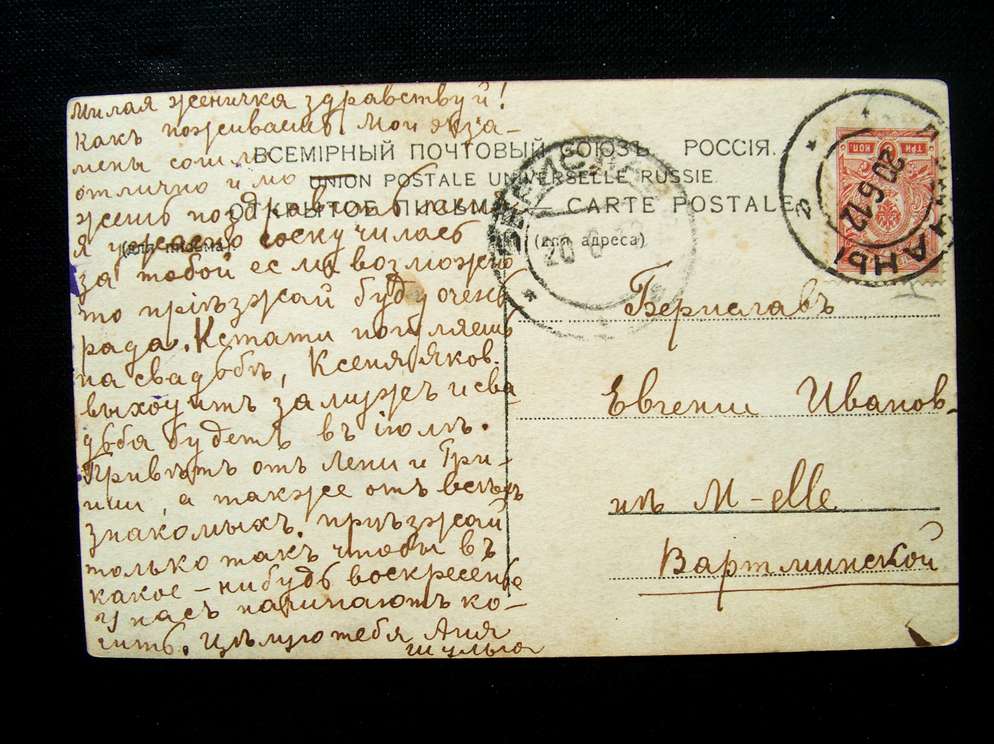 Милая женичка здравствуй!
Какъ поживаешь. Мои экза-
мены сошли
отлично и мо
жешь поздравить съ ними
я ужасно соскучилась
за тобой если возможно
то пріѣзжай буду очень
рада. Кстати погуляешь
на свадьбѣ, Ксенія Яков.
выходитъ замужъ и сва
дьба будетъ въ іюлѣ.
Привѣтъ отъ Лени и Гри-
ши, а также отъ всѣхъ
знакомыхъ. пріѣзжай
только такъ чтобы въ
какое-нибудь воскресенье
у насъ начинаютъ ко-
сить. Цѣлую тебя Аня
Шульга
ВСЕМІРНЫЙ ПОЧТОВЫЙ СОЮЗЪ РОССІЯ.
UNION POSTALE UNIVERSELLE RUSSIE.
ОТКРЫТОЕ ПИСЬМО — CARTE POSTALE
(для письма)
(для адреса)
Бериславъ
Евгении Иванов-
нѣ M-elle
Вартминской
ТРИ КОП
20 6 12